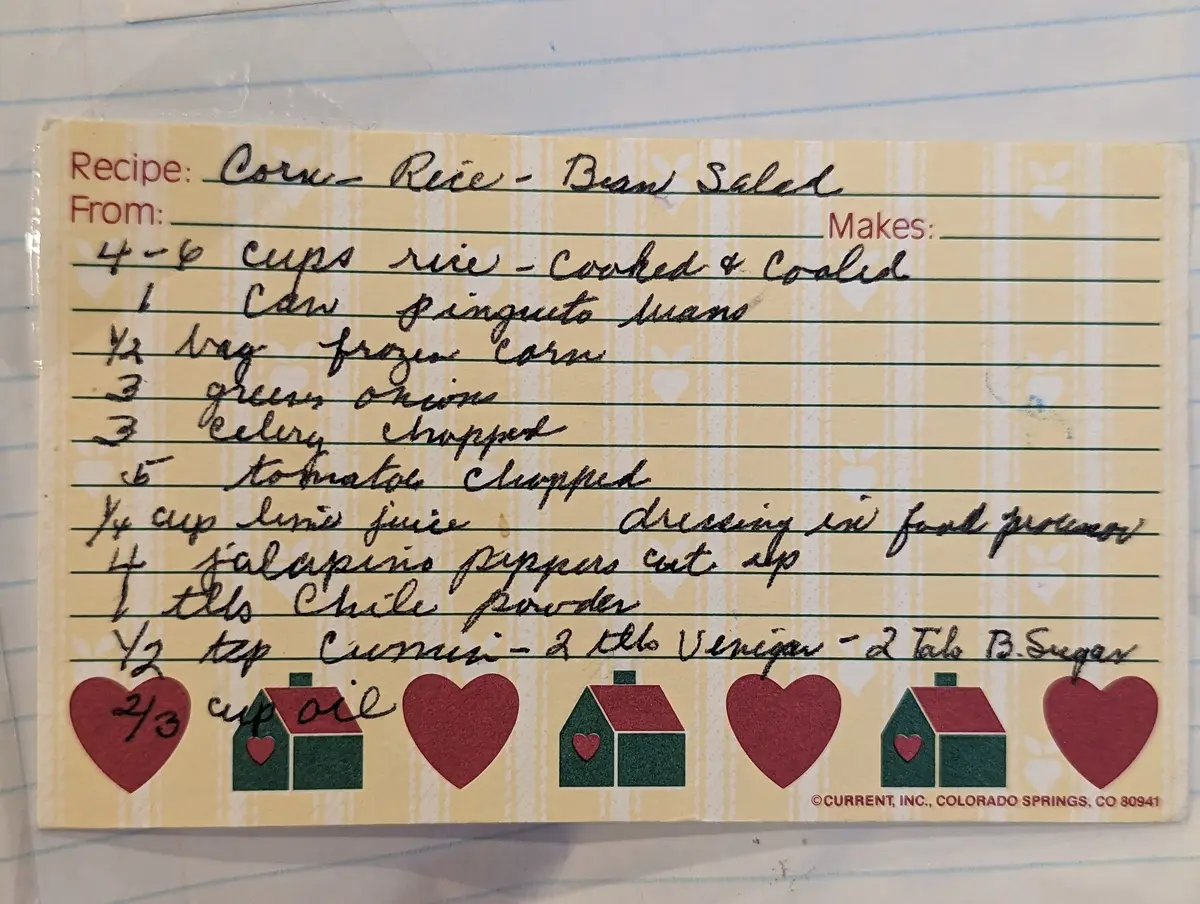 Recipe: Corn - Rice - Bean Salad
From: Makes:
4-6 cups rice - cooked & cooled
1 can pinqueto beans
1/2 bag frozen corn
3 green onions
3 celery chopped
5 tomatoe chopped
1/4 cup lime juice dressing in food processor
4 jalapino peppers cut up
1 tlbs Chile powder
1/2 tsp Cumin - 2 tlbs Venigar - 2 Tabs B. Sugar
2/3 cup oil
©CURRENT, INC., COLORADO SPRINGS, CO 80941